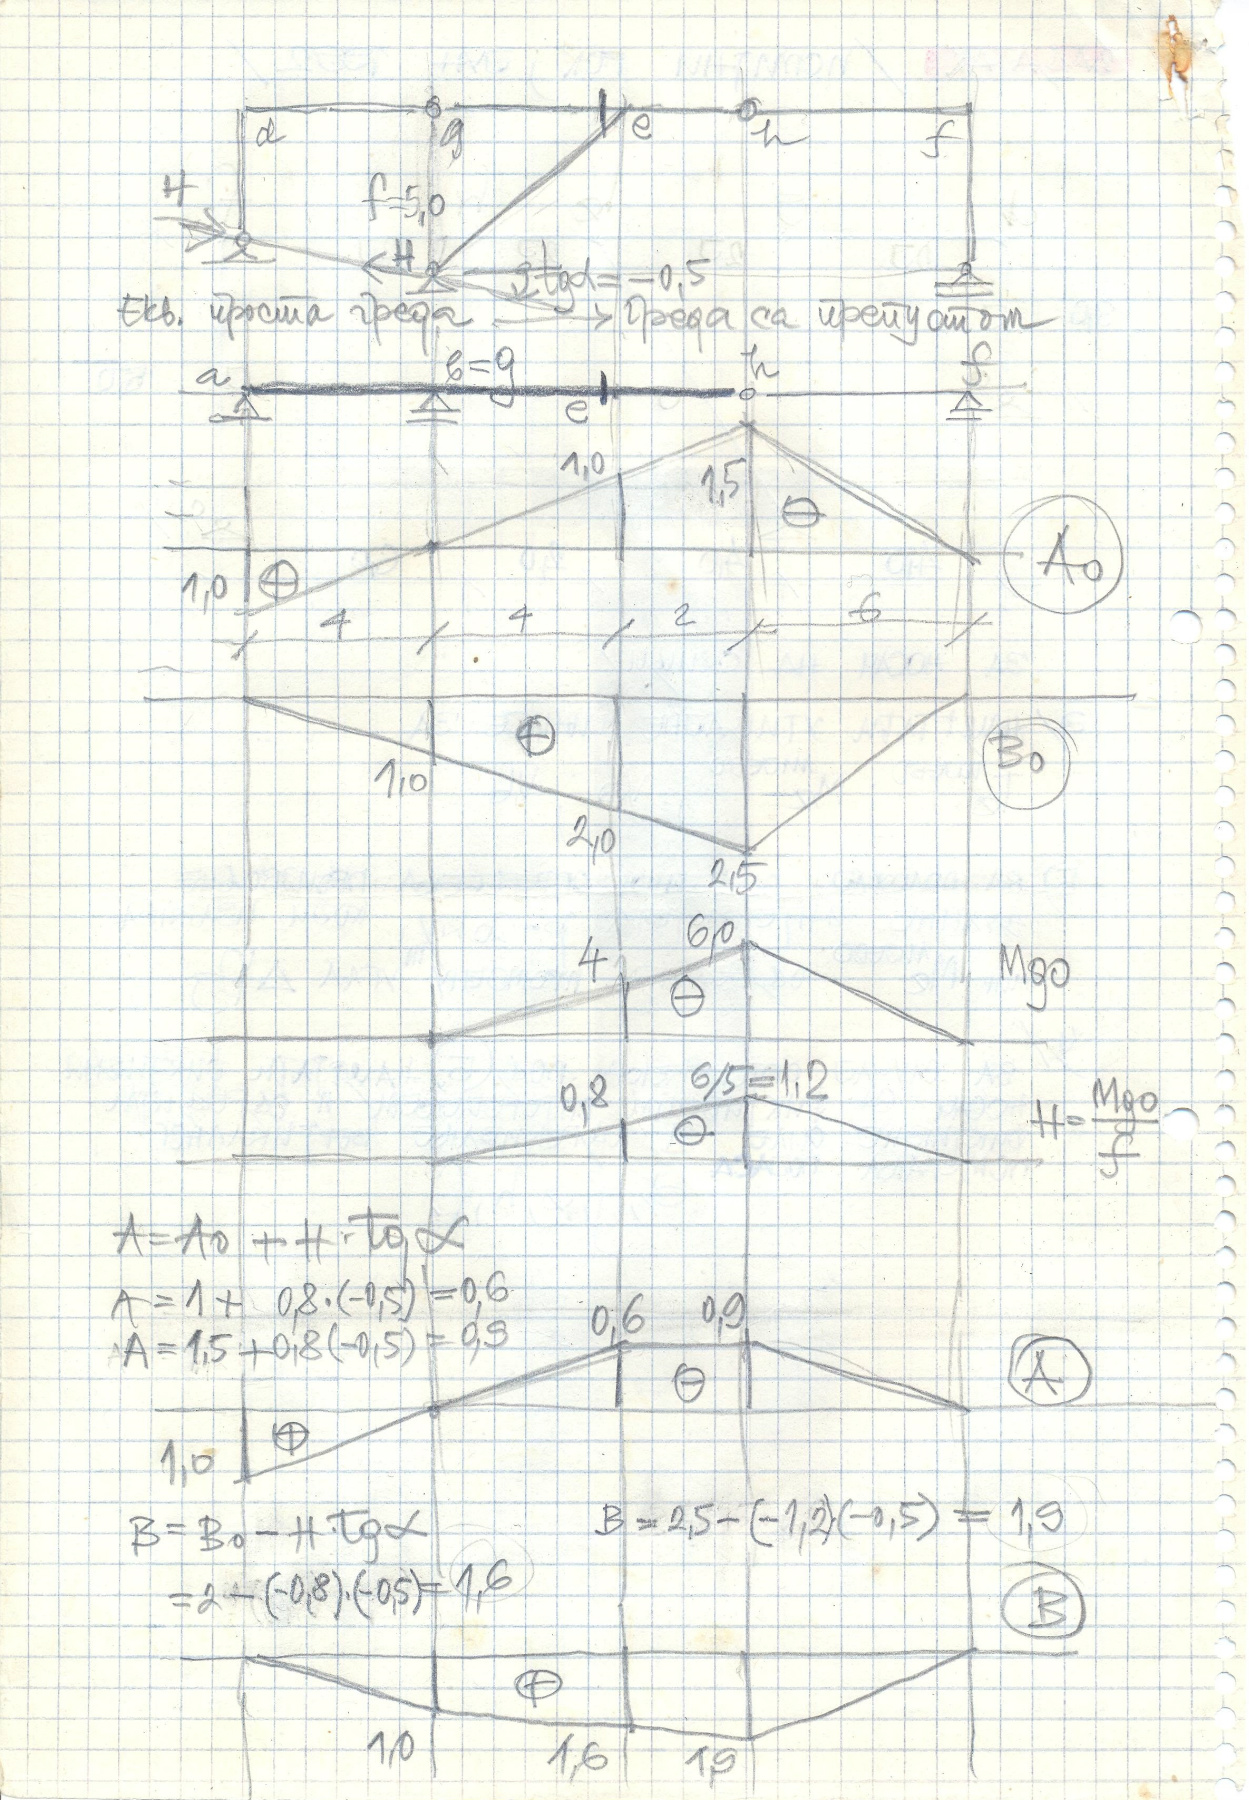 d g e h f
H
f=5,0
H tgα=-0,5
Екв. проста греда → Греда са препустом
a b=g e h f
1,0 1,5 ⊖
1,0 ⊕ A0
4 4 2 6
⊕ B0
1,0
2,0
2,5
4 6,0 ⊖ Mg0
0,8 6/5=1,2 ⊖ H=Mg0/f
A=A0+H·tgα
A=1+ 0,8·(-0,5)=0,6
A=1,5+0,8(-0,5)=0,9
0,6 0,9 ⊖ A
1,0 ⊕
B=B0-H·tgα B=2,5-(-1,2)(-0,5)=1,9
=2-(-0,8)·(-0,5)=1,6
B
⊕
1,0 1,6 1,9